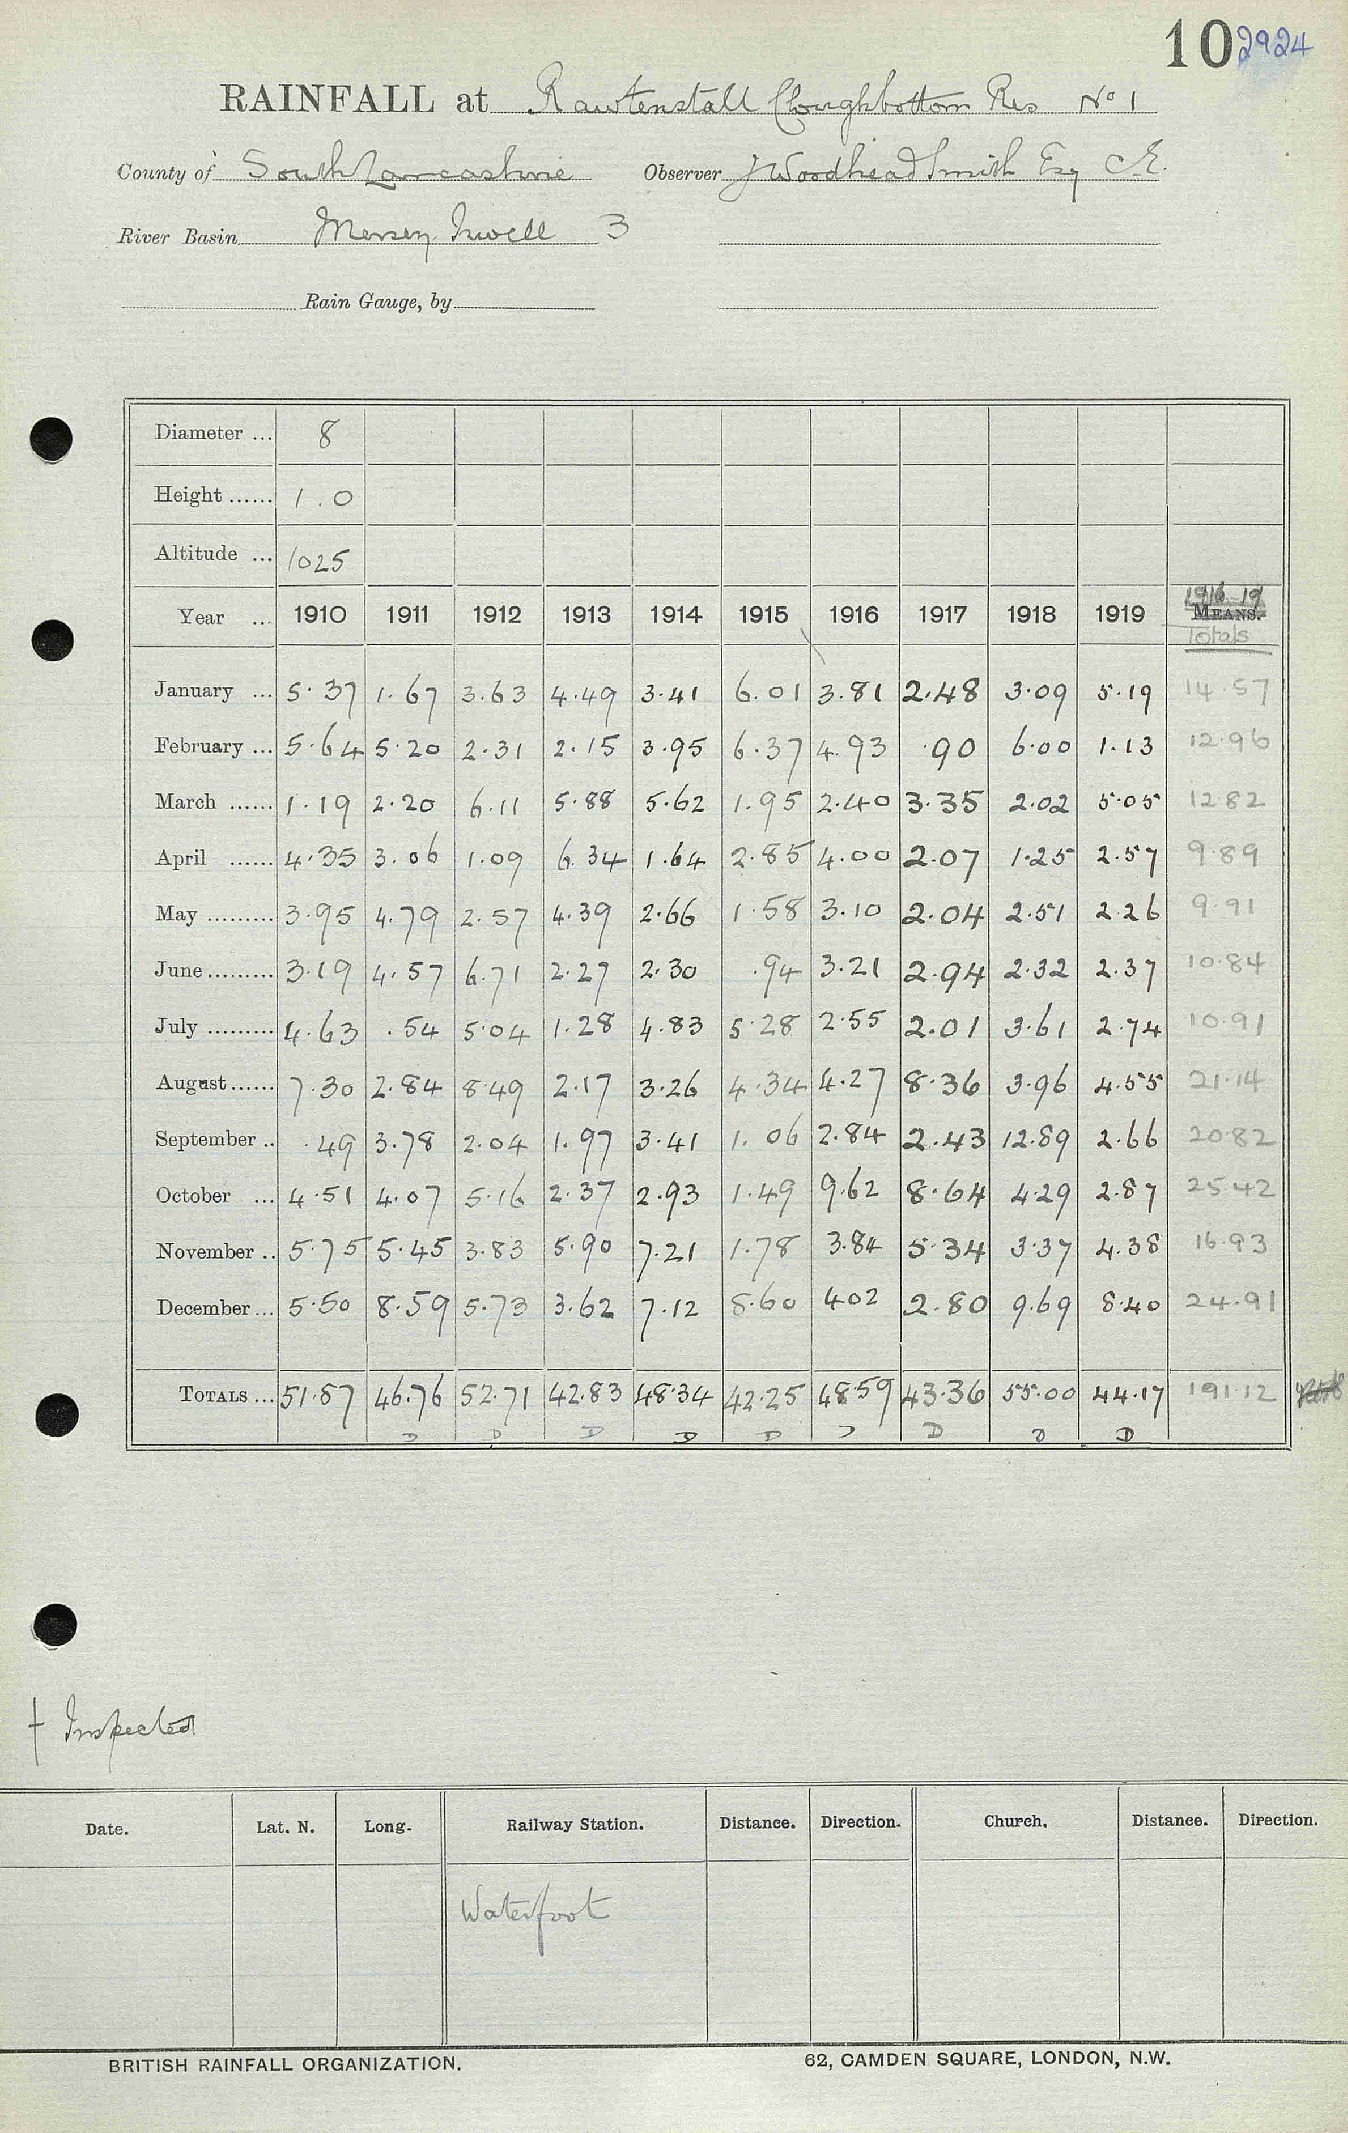 10 2924
RAINFALL at Rawtenstall Cloughbottom Res No 1
County of South Lancashire Observer J Woodhead Smith Esq C.E.
River Basin Mersey Irwell 3
Rain Gauge, by
Diameter ... 8
Height ...... 1.0
Altitude ... 1025
1916-19
Year ... 1910 1911 1912 1913 1914 1915 1916 1917 1918 1919 MEANS.
Totals
January ... 5.37 1.67 3.63 4.49 3.41 6.01 3.81 2.48 3.09 5.19 14.57
February ... 5.64 5.20 2.31 2.15 3.95 6.37 4.93 .90 6.00 1.13 12.96
March ...... 1.19 2.20 6.11 5.88 5.62 1.95 2.40 3.35 2.02 5.05 12.82
April ...... 4.35 3.06 1.09 6.34 1.64 2.85 4.00 2.07 1.25 2.57 9.89
May ......... 3.95 4.79 2.57 4.39 2.66 1.58 3.10 2.04 2.51 2.26 9.91
June ......... 3.19 4.57 6.71 2.27 2.30 .94 3.21 2.94 2.32 2.37 10.84
July ......... 4.63 .54 5.04 1.28 4.83 5.28 2.55 2.01 3.61 2.74 10.91
August ...... 7.30 2.84 8.49 2.17 3.26 4.34 4.27 8.36 3.96 4.55 21.14
September .. .49 3.78 2.04 1.97 3.41 1.06 2.84 2.43 12.89 2.66 20.82
October ... 4.51 4.07 5.16 2.37 2.93 1.49 9.62 8.64 4.29 2.87 25.42
November .. 5.75 5.45 3.83 5.90 7.21 1.78 3.84 5.34 3.37 4.38 16.93
December ... 5.50 8.59 5.73 3.62 7.12 8.60 402 2.80 9.69 8.40 24.91
TOTALS ... 51.87 46.76 52.71 42.83 48.34 42.25 48.59 43.36 55.00 44.17 191.12
D D D D D D D D D
† Inspected
Date. Lat. N. Long. Railway Station. Distance. Direction. Church. Distance. Direction.
Waterfoot
BRITISH RAINFALL ORGANIZATION. 62, CAMDEN SQUARE, LONDON, N.W.